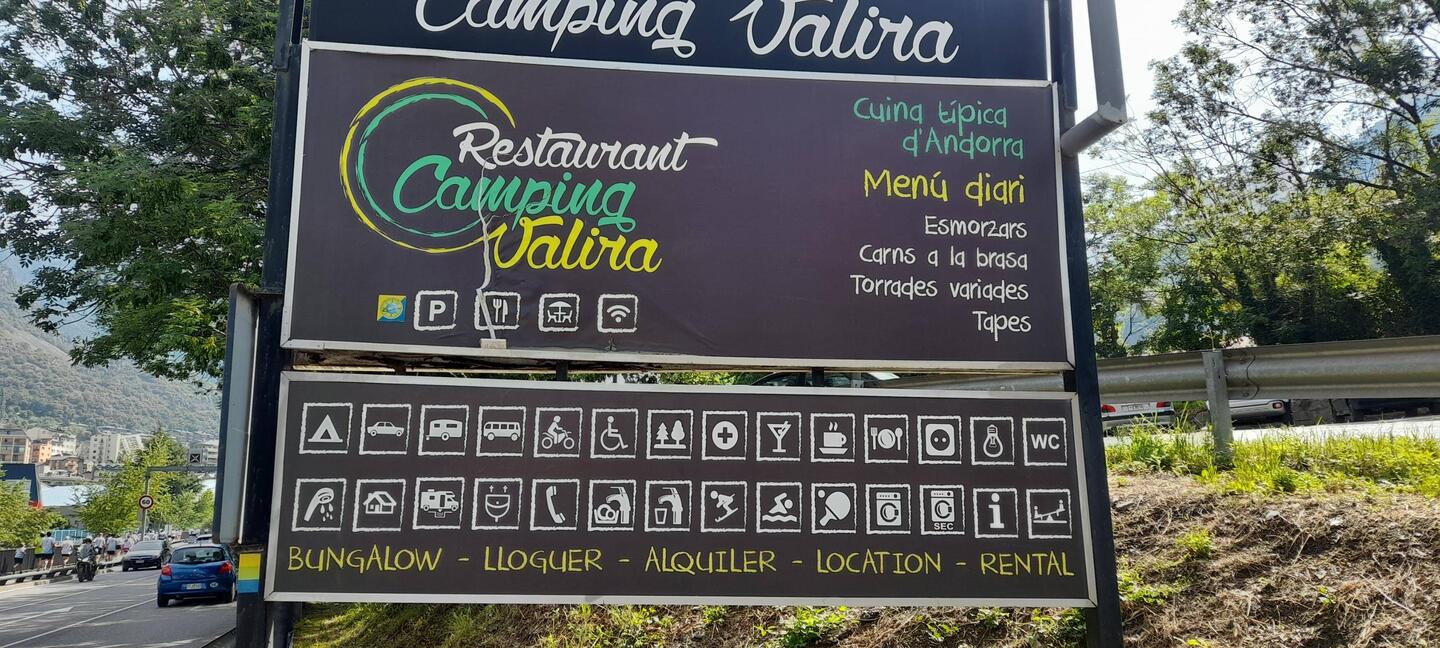 Camping Valira
Restaurant
Camping
Valira
Cuina típica
d'Andorra
Menú diari
Esmorzars
Carns a la brasa
Torrades variades
Tapes
P
WC
SEC
i
BUNGALOW - LLOGUER - ALQUILER - LOCATION - RENTAL
60